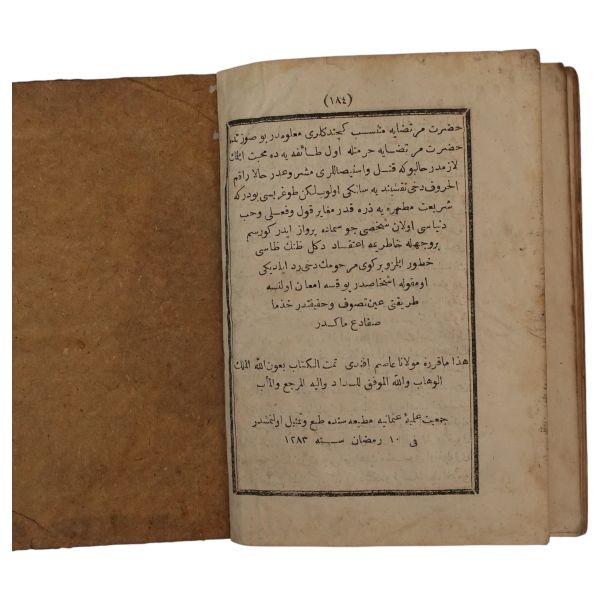 (١٨٤)
حضرت مرتضایه منتسب کچندکلری معلومدر بو صوز تمه
حضرت مرتضایه حرمتله اول طائفه یه ده محبت ایتمك
لازمدر حالبوکه قتل واستیصاللری مشروعدر حالا راقم
الحروف دخی نقشبندیه سالکی اولوب لکن طوغریسی بودرکه
شریعت مطهره یه ذره قدر مغایر قول وفعلی وحب
دنیاسی اولان شخصی جو سماده پرواز ایدر کورسم
بروجهله خاطریمه اعتقاد دکل ظنك ظاسی
خطور ایلز وبرکوی مرحومك دخی رد ایلدیکی
اومقوله اشخاصدر بوقسه امعان اولنسه
طریقتی عین تصوف وحقیقتدر خذما
صفادع ماکدر
هذا ماقرره مولانا عاصم افندی تمت الکتاب بعون الله الملك
الوهاب والله الموفق للسداد والیه المرجع والمآب
جمعیت علمیهٔ عثمانیه مطبعه سنده طبع وتمثیل اولنمشدر
فی ١٠ رمضان سنه ١٢٨٣